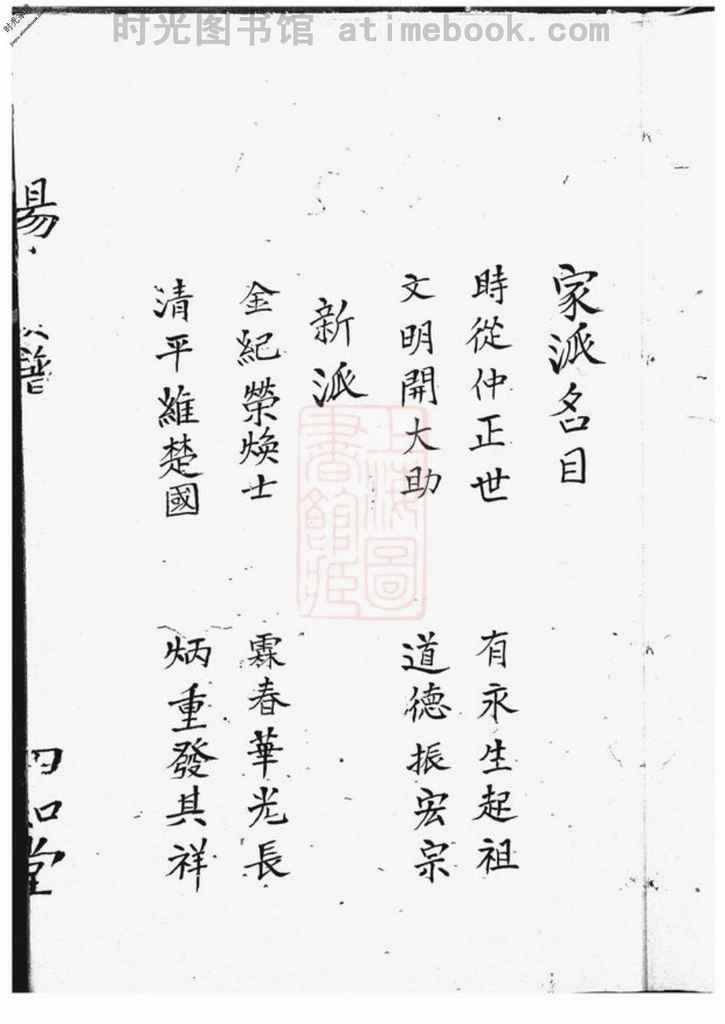 时光图书馆 atimebook.com
家派名目
時從仲正世 有永生起祖
文明開大助 道德振宏宗
新派
金紀榮煥士 霖春華光長
清平維楚國 炳重發其祥
上海圖書館藏
譜
四知堂